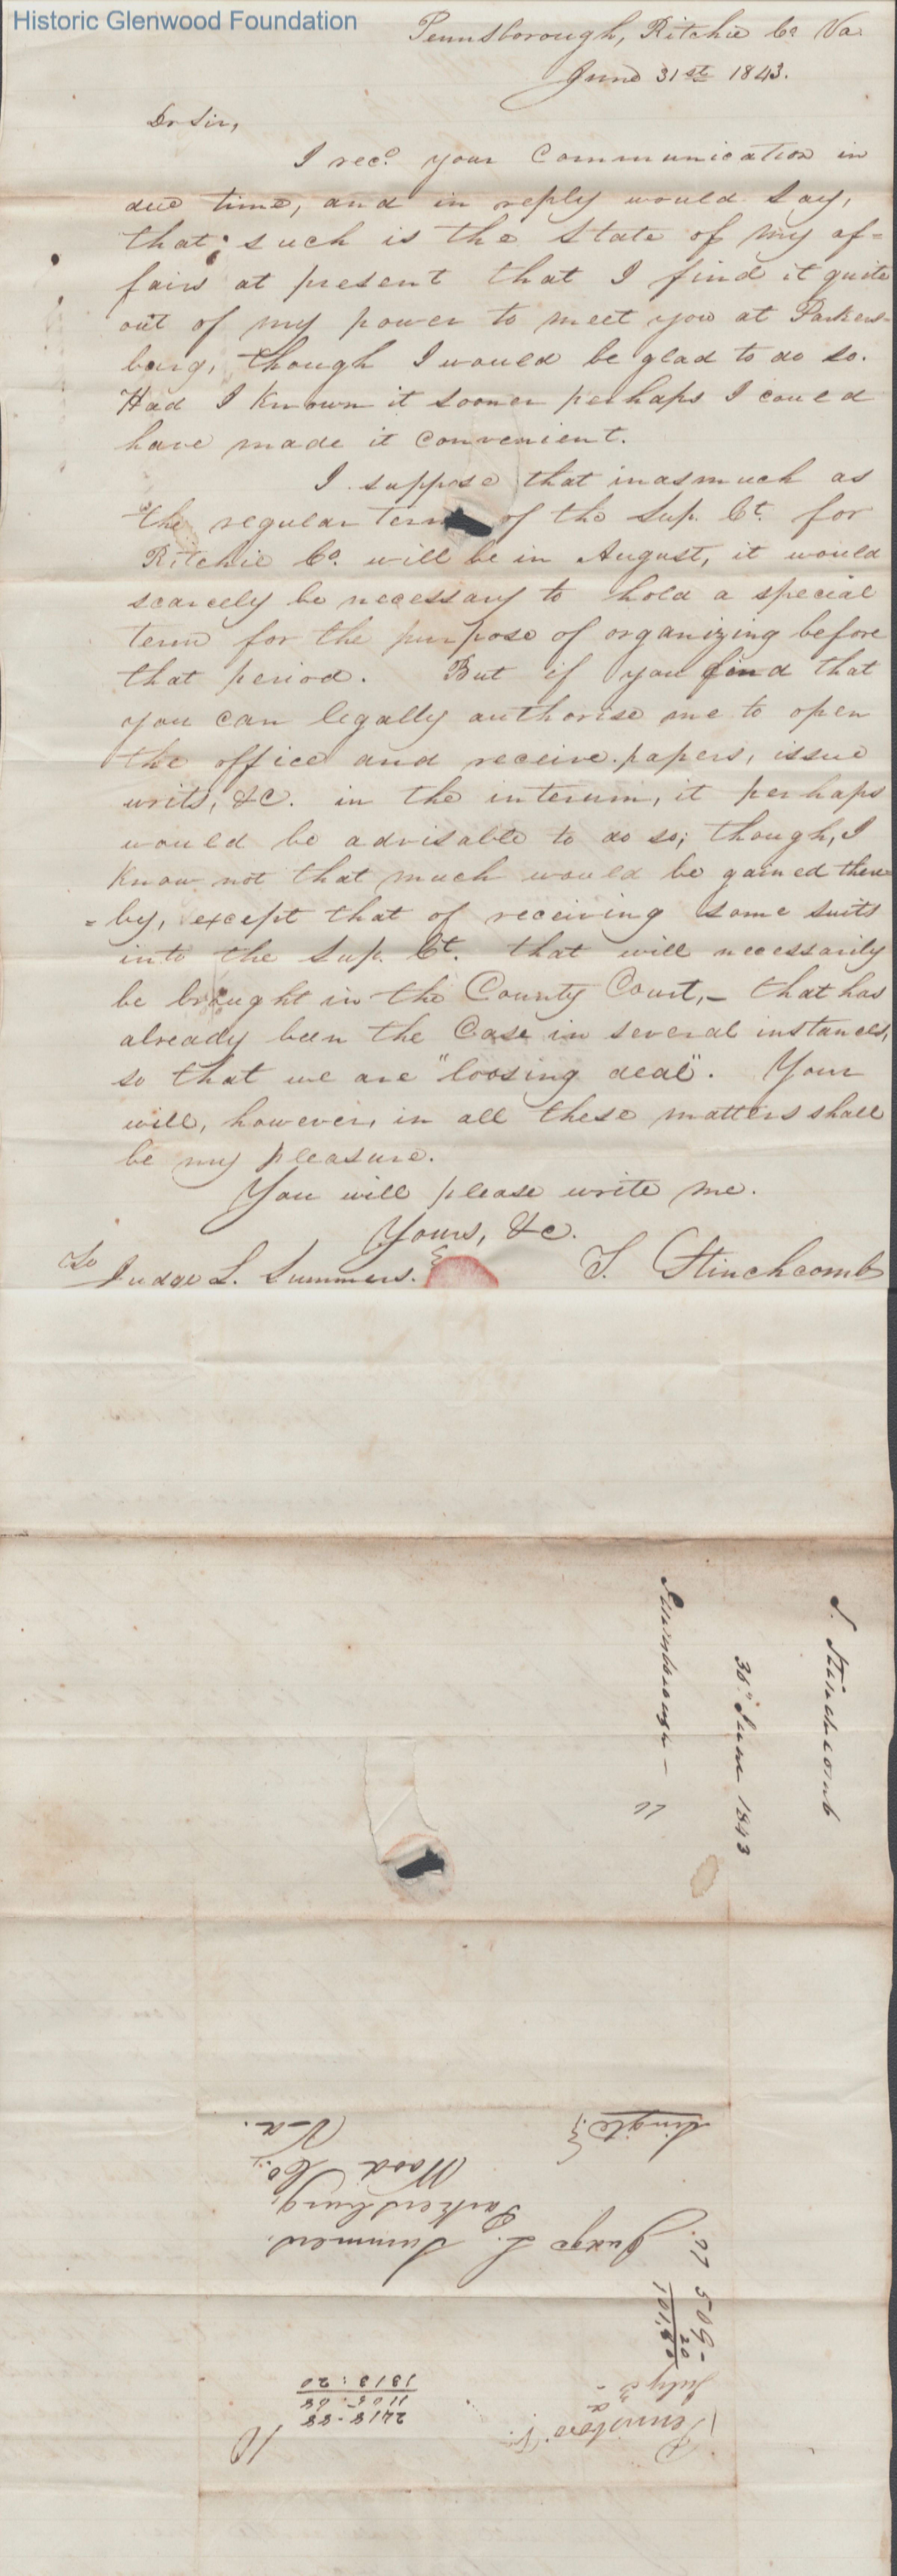 Historic Glenwood Foundation
Pennsborough, Ritchie Co. Va.
June 31st 1843.
Dr Sir,
I recd. your Communication in
due time, and in reply would say,
that; such is the state of my af=
fairs at present that I find it quite
out of my power to meet you at Parkers-
burg, though I would be glad to do so.
Had I known it sooner perhaps I could
have made it convenient.
I suppose that inasmuch as
the regular term of the Sup. Ct. for
Ritchie Co. will be in August, it would
scarcely be necessary to hold a special
term for the purpose of organizing before
that period. But if you find that
you can legally authorise me to open
the office and receive papers, issue
writs, &c. in the interim, it perhaps
would be advisable to do so; though, I
know not that much would be gained there
=by, except that of receiving some suits
into the Sup. Ct. that will necessarily
be brought in the County Court,- that has
already been the Case in several instances,
so that we are "loosing deal". Your
will, however, in all these matters shall
be my pleasure.
You will please write me.
Yours, &c.
To Judge L. Summers. S. Stinchcomb
S. Stinchcomb
30 June 1843
Pennsborough -
Pennsboro Va
July 3
10
2418-88
1105:68
1313:20
509-
20
101,80
Judge L. Summers.
Parkersburg,
Wood Co.,
Va.
Single